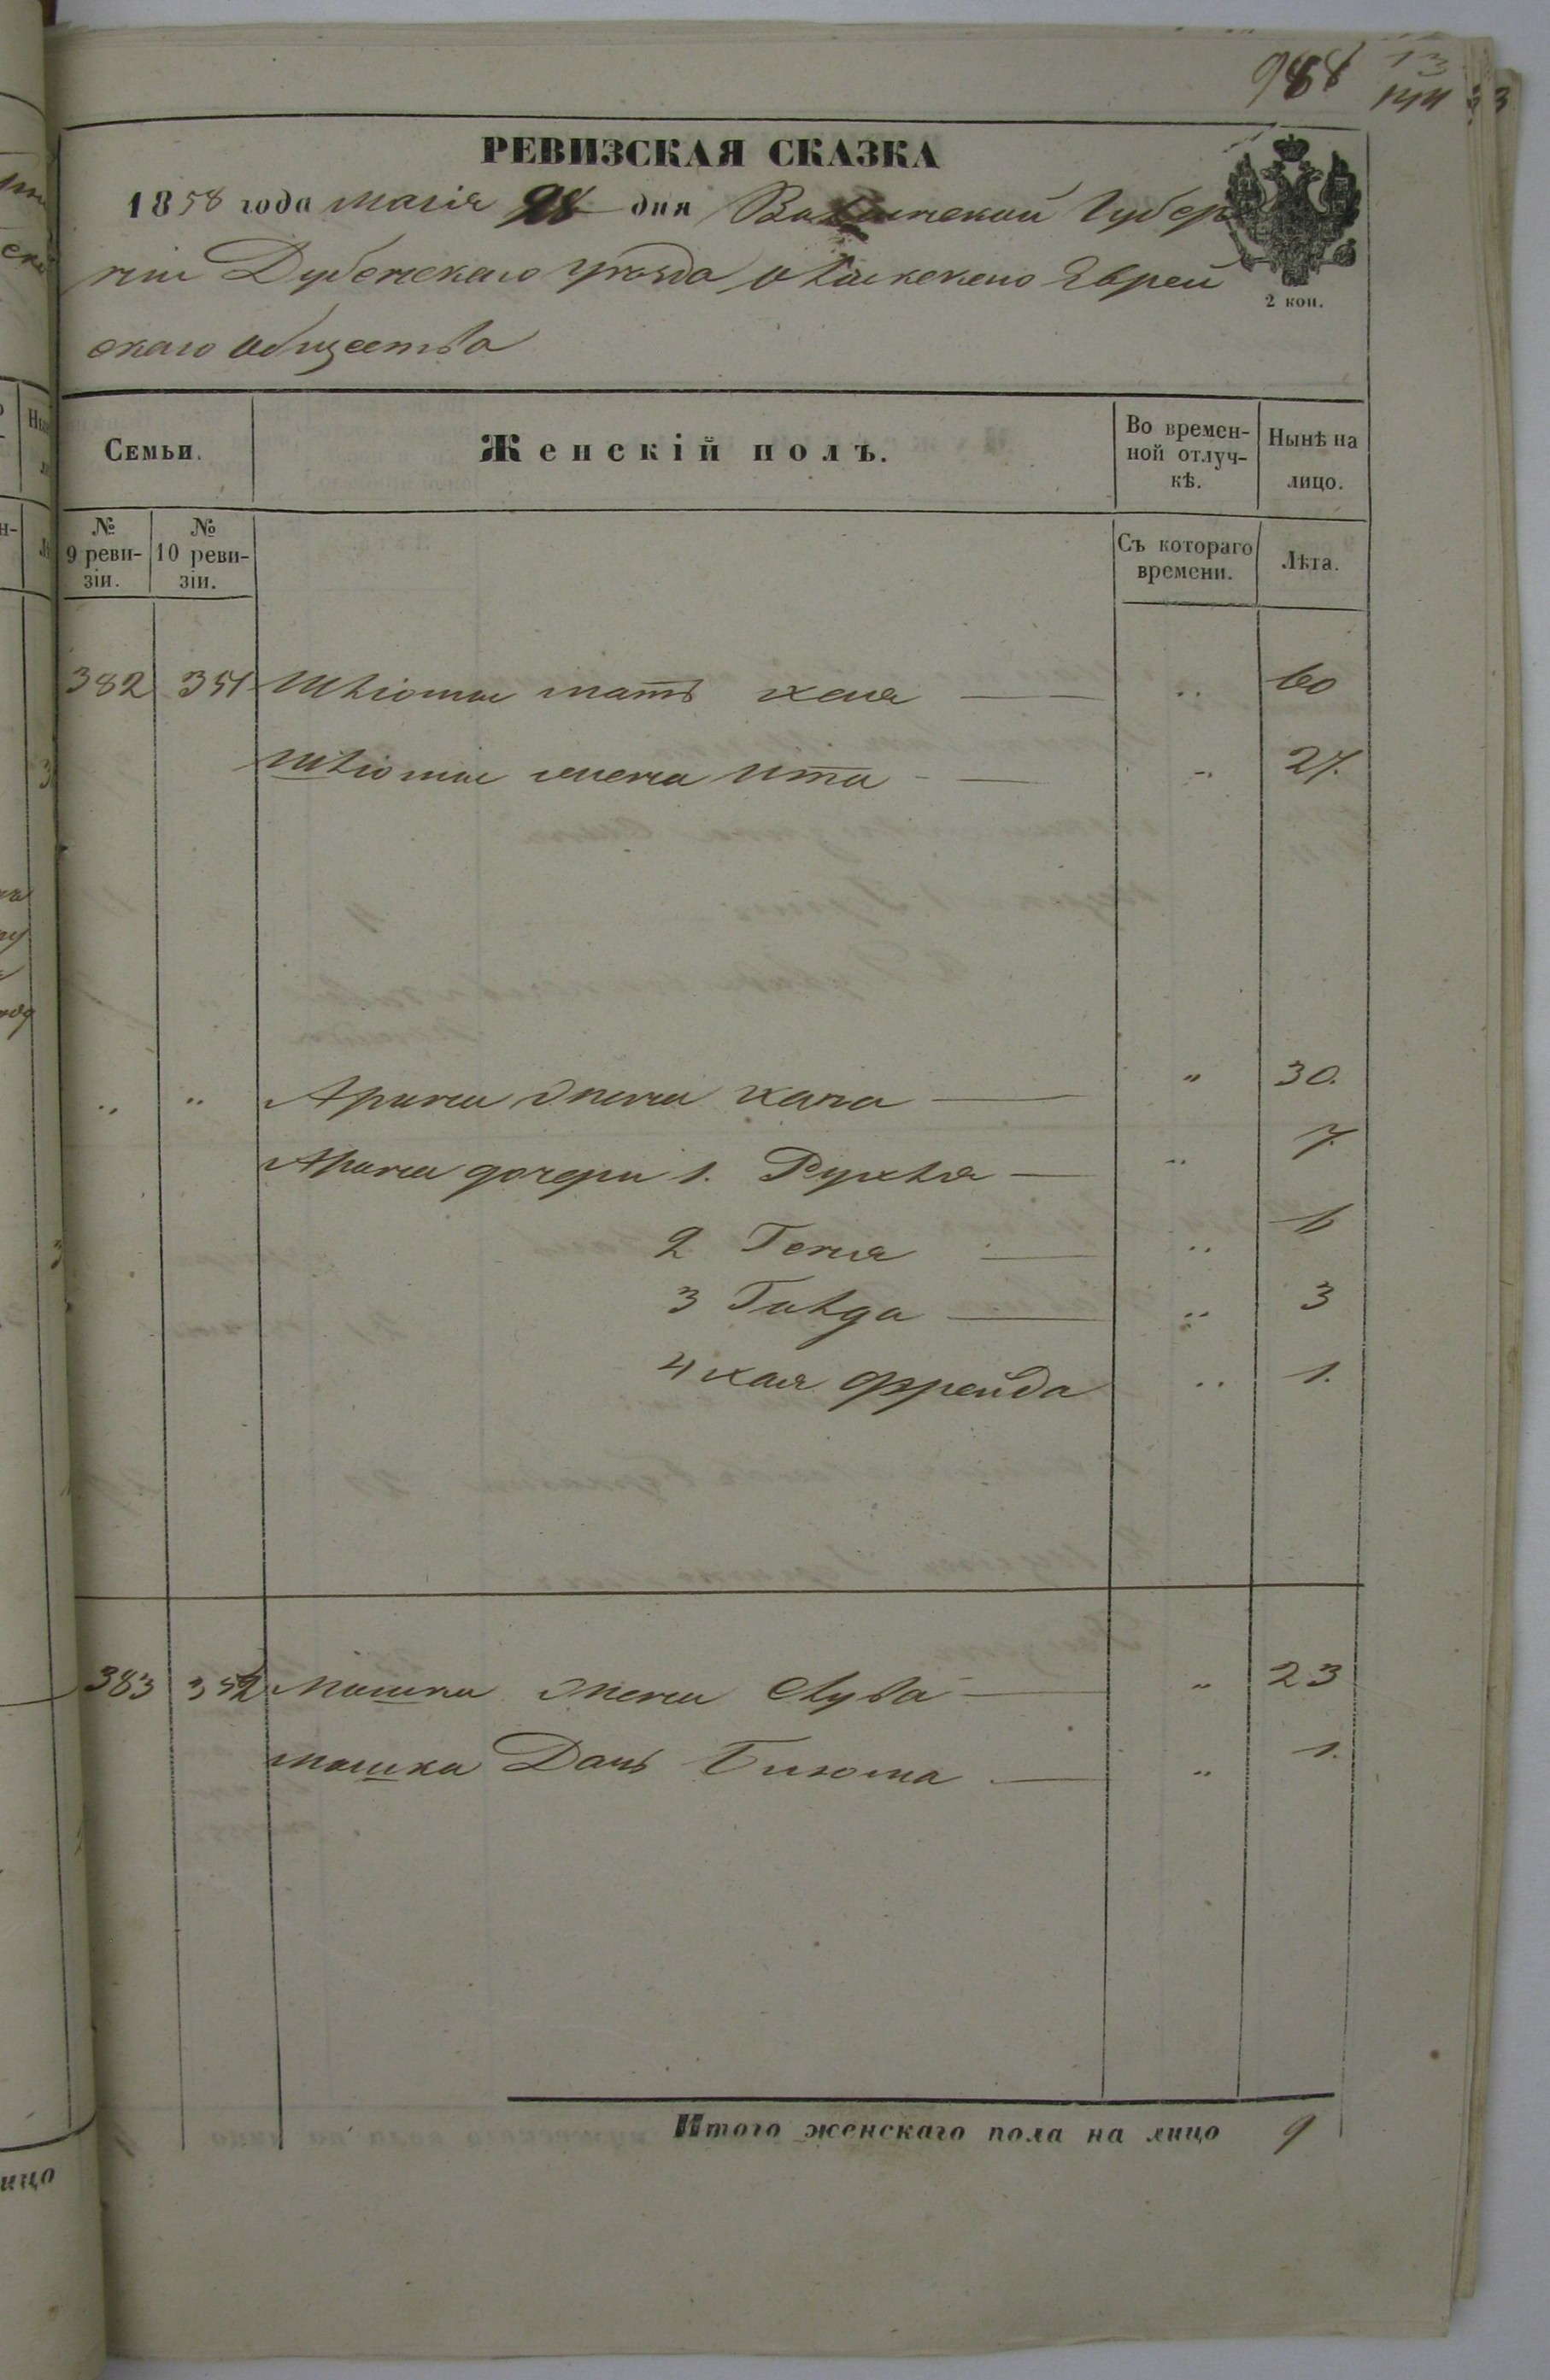 988
РЕВИЗСКАЯ СКАЗКА
1858 года маія 28 дня Волынской Губер
ніи Дубенскаго уѣзда Олыкскаго Еврей
скаго общества
2 коп.
Семьи.
Женскій полъ.
Во времен-
ной отлуч-
кѣ.
Нынѣ на
лицо.
№
9 реви-
зіи.
№
10 реви-
зіи.
Съ котораго
времени.
Лѣта.
382 351 Шліомы мать хая „ 60
Шліомы жена Ита „ 27.
„ „ Арона жена хана „ 30.
Арона дочери 1. Рухля „ 7.
2 Геня „ 6
3 Голда „ 3
4 хая Фрейда „ 1.
383 352 Мошка жена Люба „ 23
мошка Дочь Блюма „ 1.
Итого женскаго пола на лицо 9